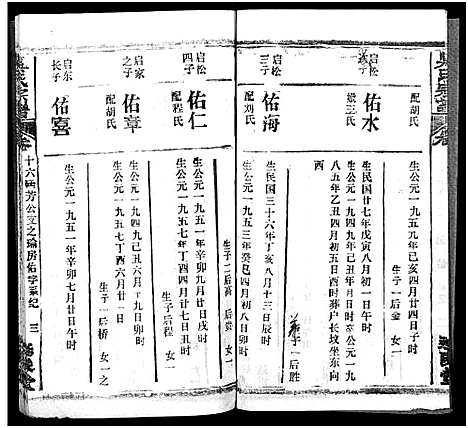 生公元一九五九年己亥四月廿四日子时
生子一后金 女一
启松
二子
佑水
嫉王氏
生民国廿七年戊寅八月初一日午时
生公元一九四九年己丑年月初一日
八五年乙丑四月初五日酉时葬户长坟坐东向
西
启松
三子
佑海
配刘氏
生民国三十六年丁亥八月十三日辰时
生公元一九五三年癸巳四月初八日卯时
子一后胜
启松
四子
佑仁
配程氏
生公元一九五一年辛卯九月廿九日戌时
生公元一九五七年丁酉四月廿七日卯时
生子一后程 女一
启家
之子
佑章
配胡氏
生公元一九四九己丑六月十九日卯时
生公元一九五七丁酉六月廿一日
生子一后桥 女一
启东
长子
佑喜
生公元一九五一年辛卯七月廿日午时
十六画芳公文之瑜房佑字系纪
三